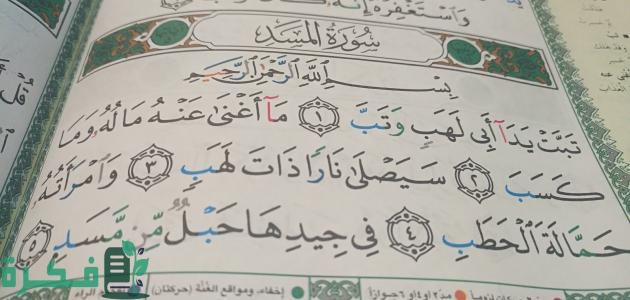 وَاسْتَغْفِرْهُ إِنَّهُ كَانَ
سُورَةُ المَسَدِ
بِسْمِ اللَّهِ الرَّحْمَٰنِ الرَّحِيمِ
تَبَّتْ يَدَآ أَبِى لَهَبٍ وَتَبَّ ١ مَآ أَغْنَىٰ عَنْهُ مَالُهُۥ وَمَا
كَسَبَ ٢ سَيَصْلَىٰ نَارًا ذَاتَ لَهَبٍ ٣ وَٱمْرَأَتُهُۥ
حَمَّالَةَ ٱلْحَطَبِ ٤ فِى جِيدِهَا حَبْلٌ مِّن مَّسَدٍ ٥
إخفاء، ومواقع الغُنَّة (حركتان)
فكرة